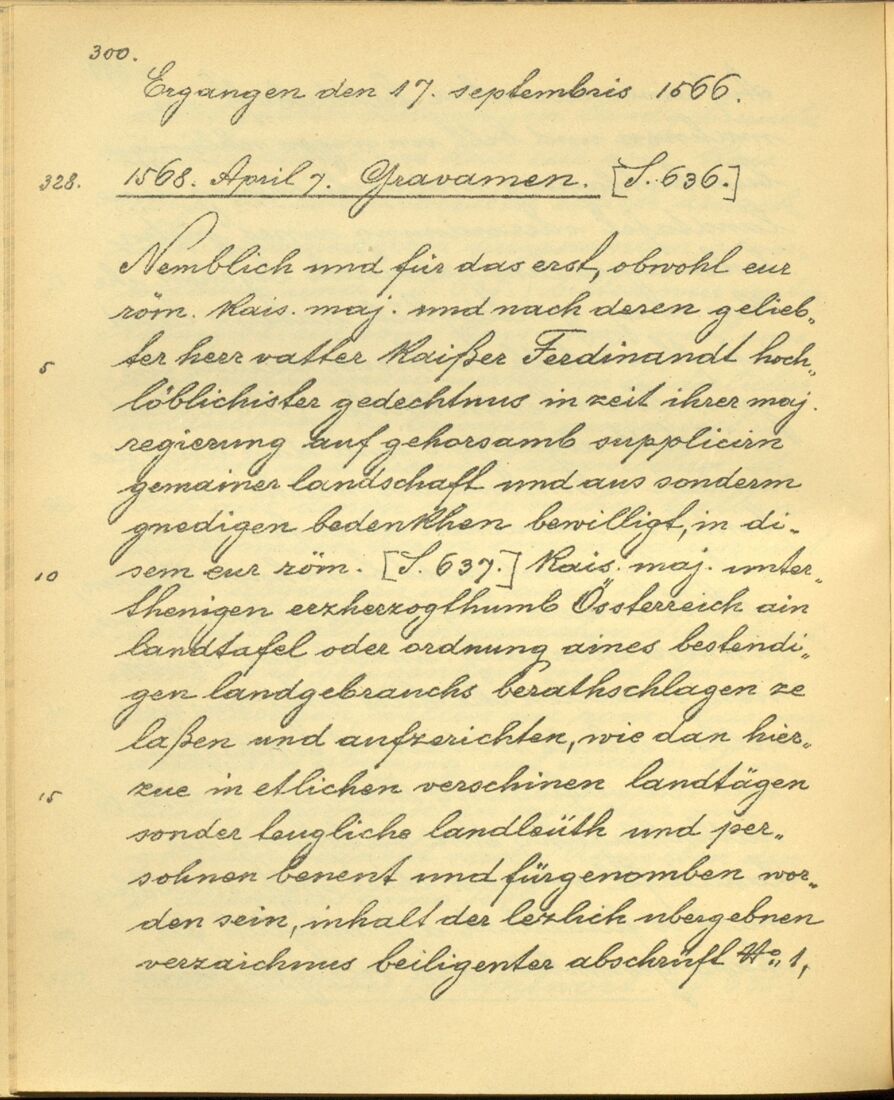 300.
Ergangen den 17. septembris 1566.
328. 1568. April 7. Gravamen. [S. 636.]
Nemblich und für das erst, obwohl eur
röm. Kais. maj. und nach deren gelieb„
5 ter herr vatter Kaißer Ferdinandt hoch„
löblichister gedechtnus in zeit ihrer maj.
regierung auf gehorsamb supplicirn
gemainer landschaft und aus sonderm
gnedigen bedenkhen bewilligt, in di„
10 sem eur röm. [S. 637.] Kais. maj. unter„
thenigen erzherzogthumb Össterreich ain
landtafel oder ordnung aines bestendi„
gen landgebrauchs berathschlagen ze
laßen und aufzerichten, wie dan hier„
15 zue in etlichen verschinen landtägen
sonder teugliche landleüth und per„
sohnen benent und fürgenomben wor„
den sein, inhalt der lezlich ubergebnen
verzaichnus beiligenter abschrüft No. 1,